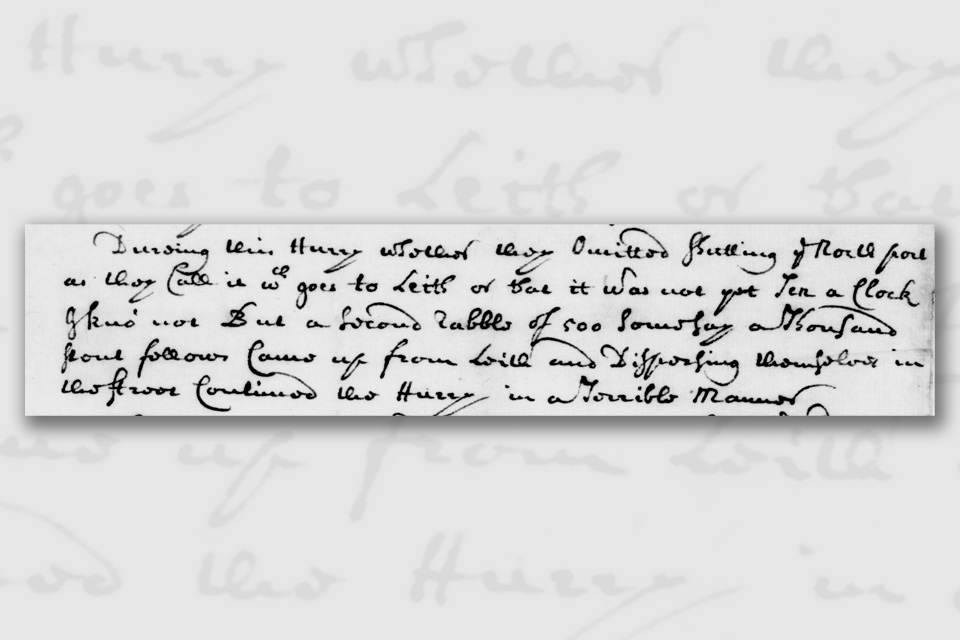 Dureing this Hurry whether they Omitted Shutting yᵉ North port
as they Call it wᶜʰ goes to Leith or that it was not yet Ten a Clock
I kno' not But a Second rabble of 500 Some say a Thousand
stout fellows Came up from Leith and Disperseing themselves in
the street Continued the Hurry in a Terrible Manner